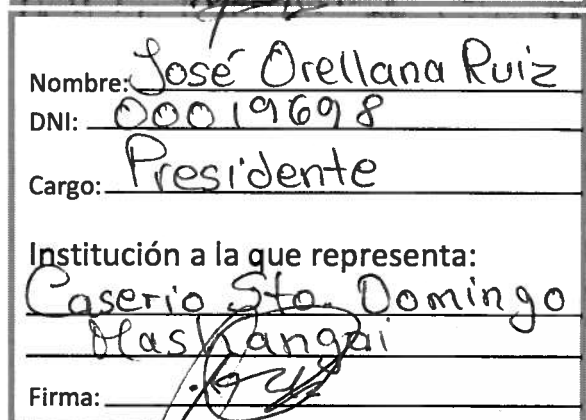 Nombre: José Orellana Ruiz
DNI: 00019698
Cargo: Presidente
Institución a la que representa:
Caserio Sto. Domingo
Mashangai
Firma: